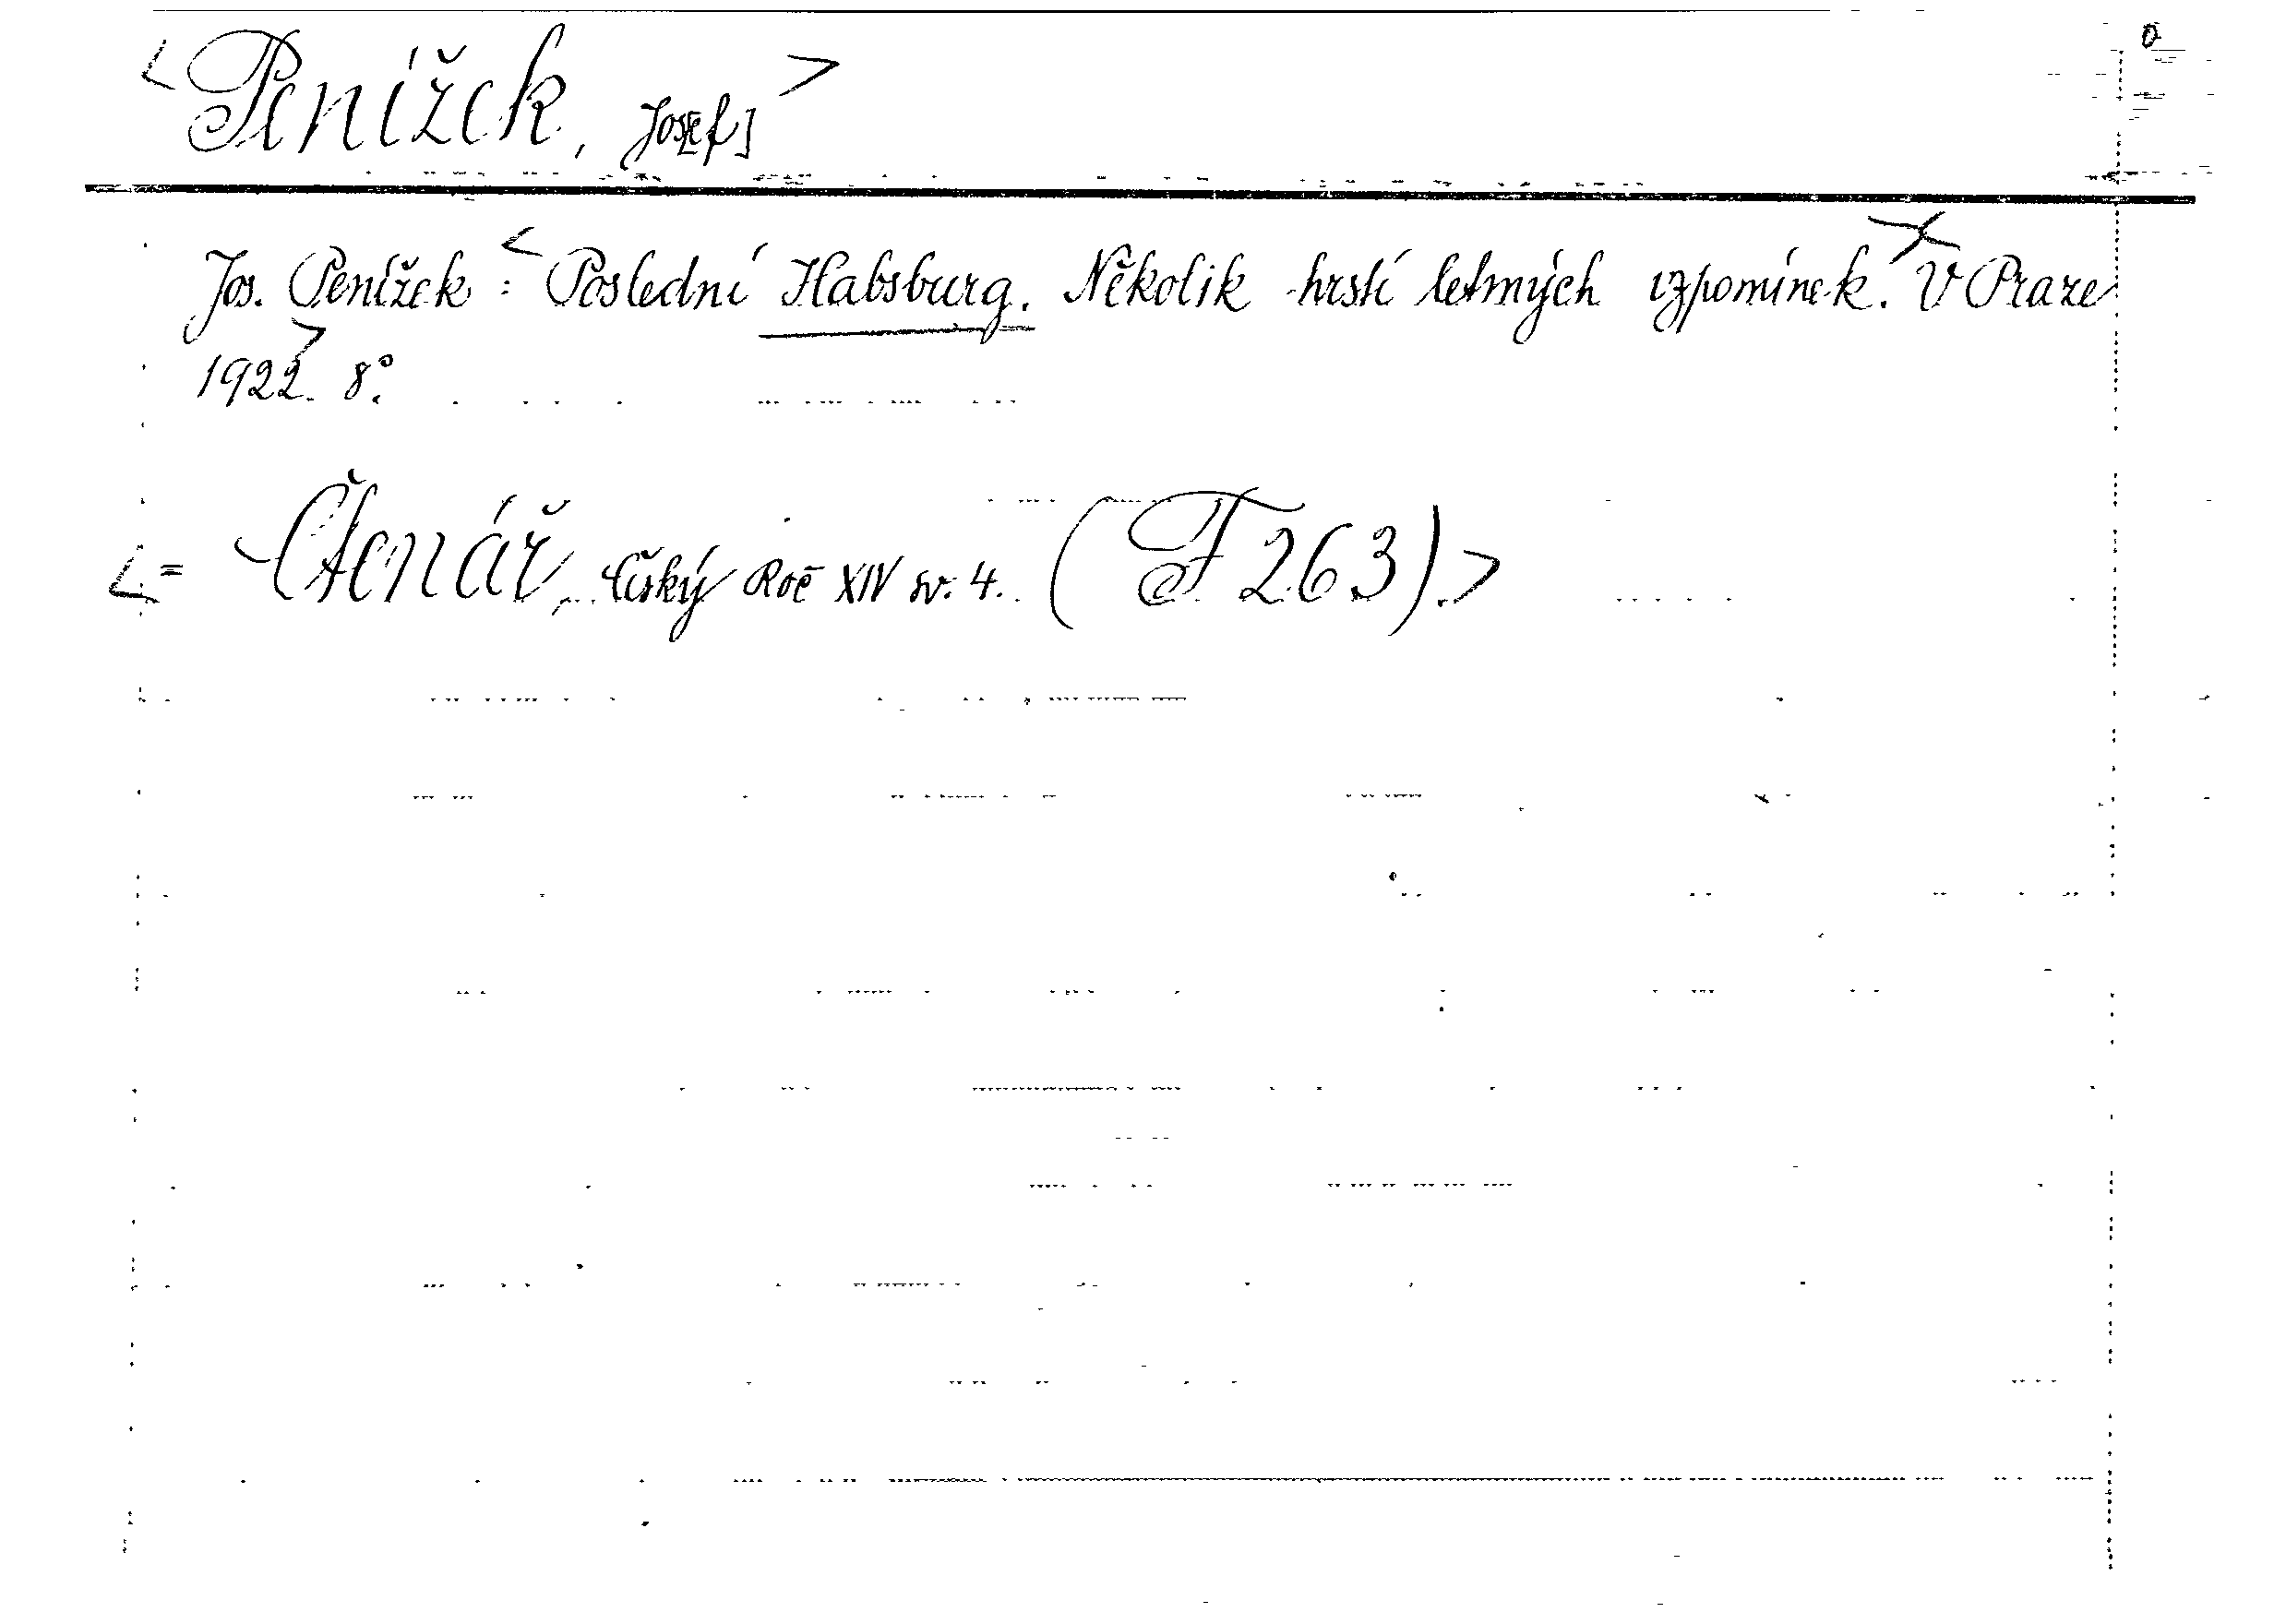 <Penížek, Jos[ef]>
Jos. Penížek : <Poslední Habsburg. Několik hrstí letmých vzpomínek.>< V Praze
1922.> 8°.
<= Čtenář, Český Roč XIV sv. 4. (F 263).>